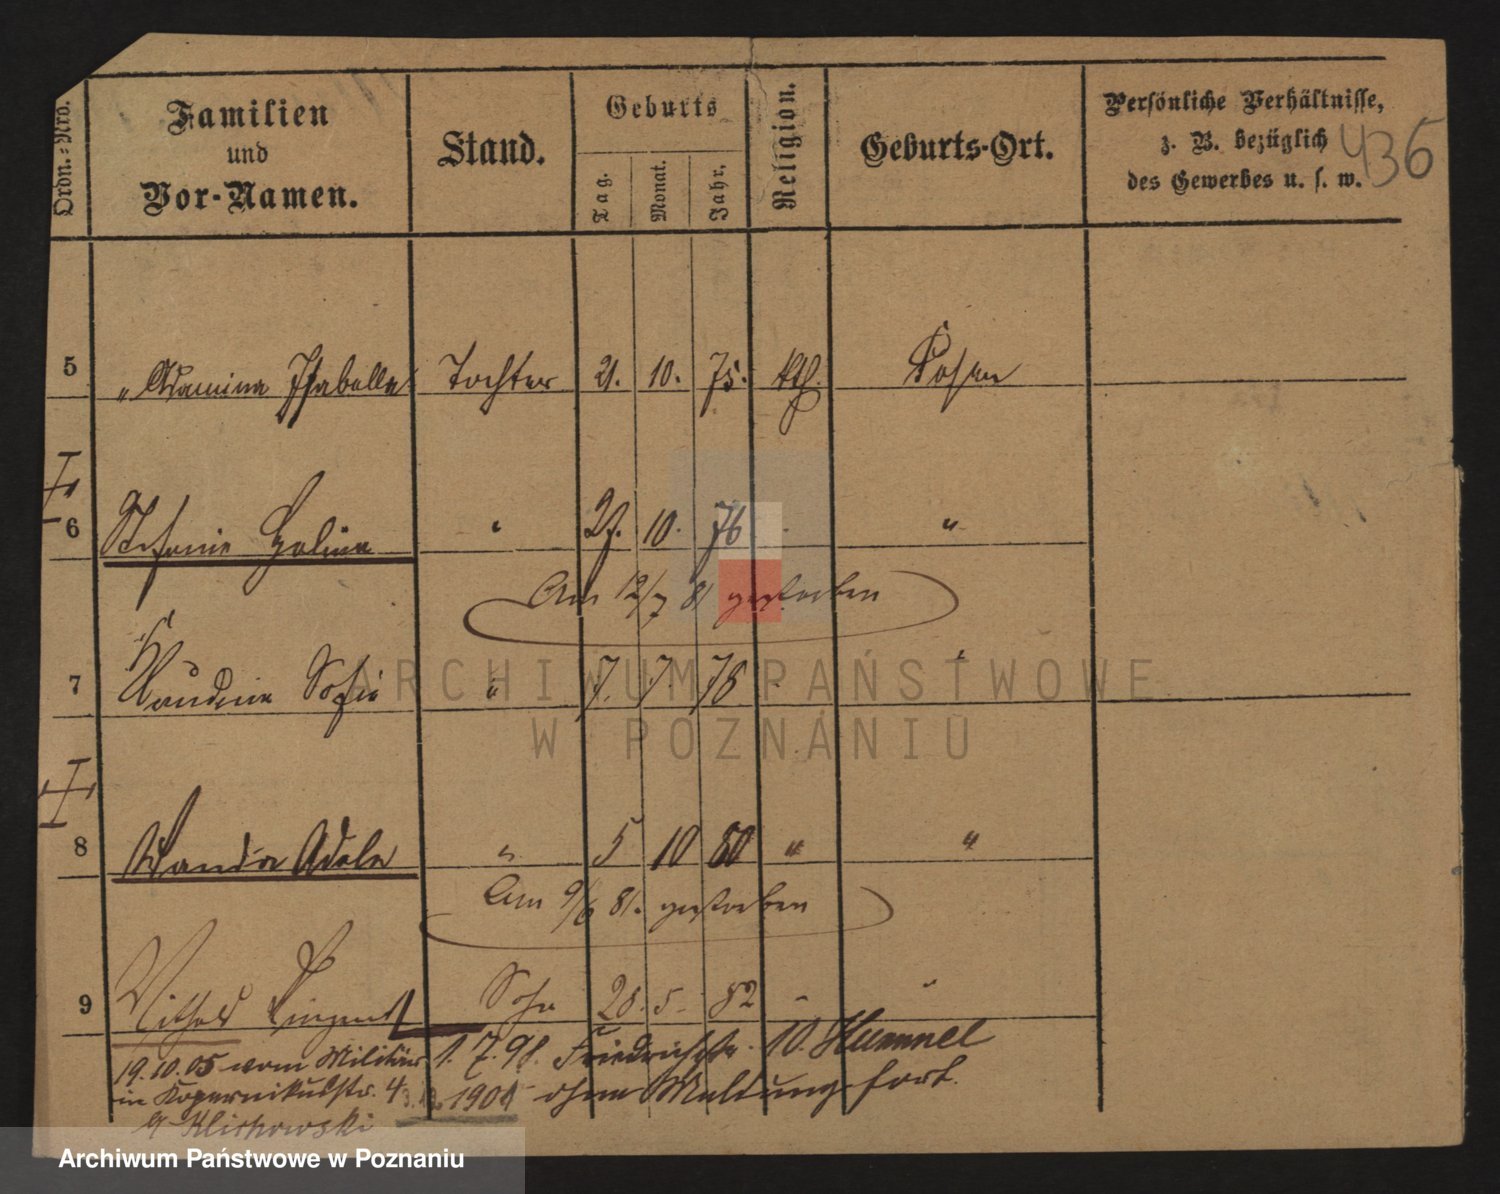 Ordn.=Nro.
Familien und Vor-Namen.
Stand.
Geburts
Tag.
Monat.
Jahr.
Religion.
Geburts-Ort.
Persönliche Verhältnisse,
z. B. bezüglich
des Gewerbes u. s. w.
436
5 " Isabella Tochter 21. 10. 75. kth. Posen
6 Stefanie Halina " 27. 10. 76 "
Am 12/7 81 gestorben
7 Sofie " 7. 7. 78
8 Wanda Adele " 5 10 80 " "
Am 9/6 81. gestorben
9 Withold Vinzent Sohn 28. 5. 82 " "
1. 7. 98. Friedrichstr. 10. Hummel
19.10.05 vom Militär
in Kopernikusstr. 4
1901 ohne Meldung fort.
ARCHIWUM PAŃSTWOWE
W POZNANIU
Archiwum Państwowe w Poznaniu